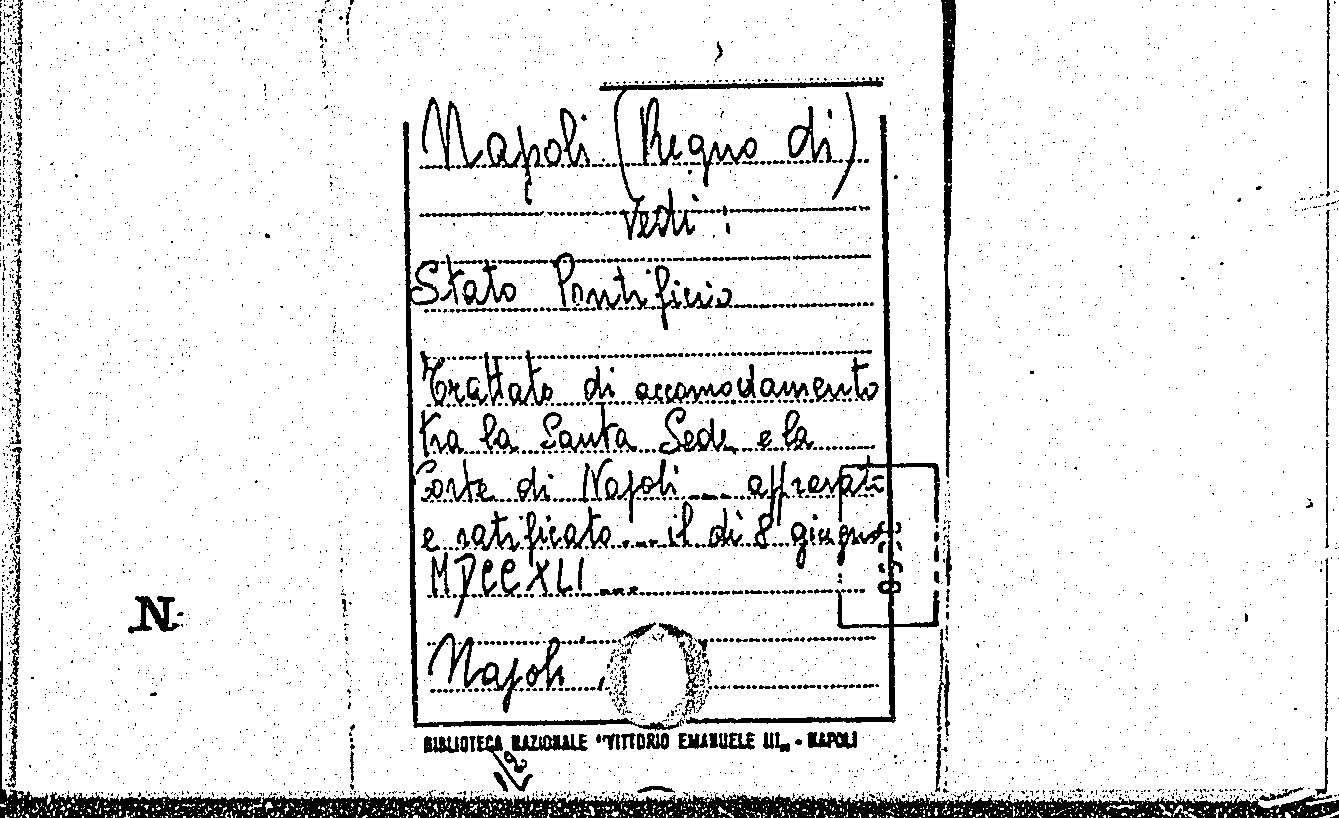 Napoli (Regno di)
Vedi :
Stato Pontificio
Trattato di accomodamento
tra la Santa Sede e la
Corte di Napoli ....
e ratificato.... il di 8 giugno
MDCCXLI ....
Napoli
N
BIBLIOTECA NAZIONALE "VITTORIO EMANUELE III„ - NAPOLI